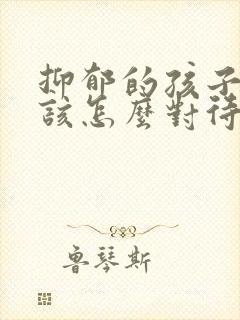 抑郁的孩子
該怎麼對待
魯琴斯